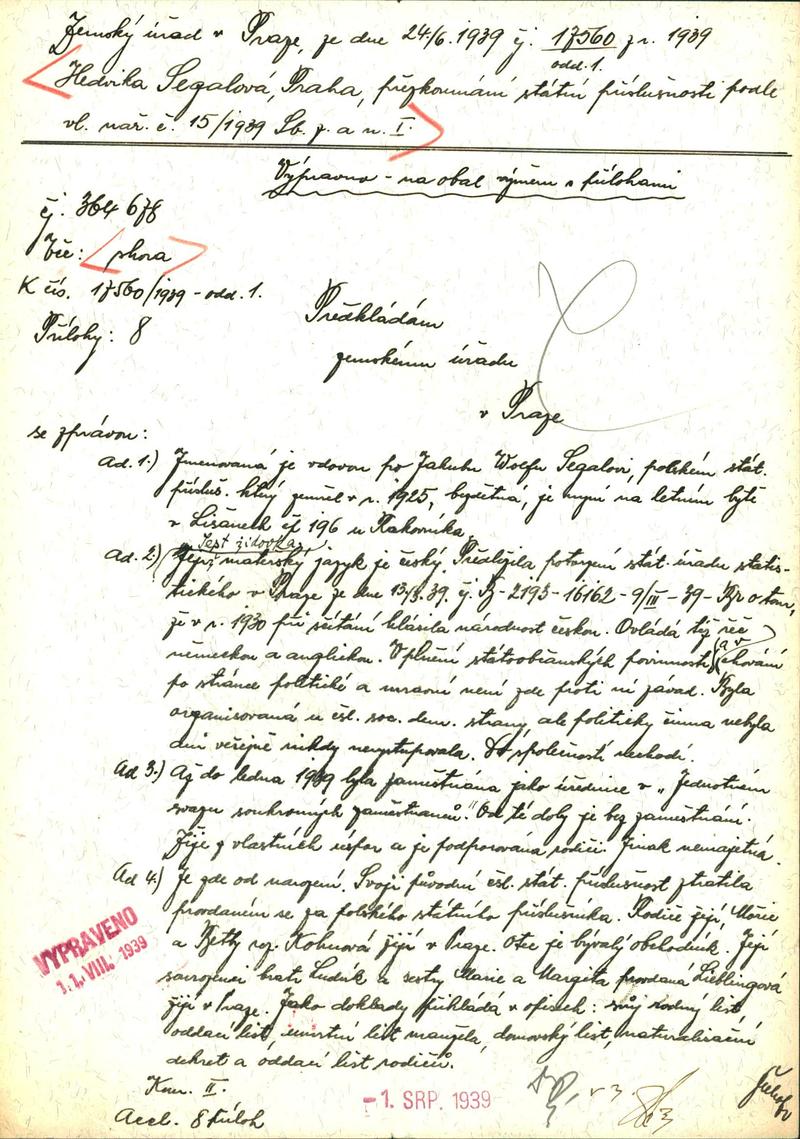 Zemský úřad v Praze, ze dne 24/6.1939 čj. 17560 z r. 1939
odd. 1.
Hedvika Segalová, Praha, přezkoumání státní příslušnosti podle
vl. nař. č. 15/1939 Sb. z. a n. I.
Výpravno - na obal výměn s přílohami
čj. 364 678
Věc: shora
K čís. 17560/1939 - odd. 1.
Přílohy: 8
Předkládám
zemskému úřadu
v Praze
se zprávou:
Ad. 1.) Jmenovaná je vdovou po Jakubu Wolfu Segalovi, polském stát.
přísluš. který zemřel v r. 1925, bezdětná, je nyní na letním bytě
v Lišanech čp 196 u Rakovníka.
Jest židovka,
Ad. 2.) Její mateřský jazyk je český. Předložila potvrzení stát. úřadu statis-
tického v Praze ze dne 13/3.39. čj. B - 2193 - 16162 - 9/III - 39 - Br o tom,
že v r. 1930 při sčítání hlásila národnost českou. Ovládá též řeč
německou a anglickou. V plnění státoobčanských povinností a v chování
po stránce politické a mravní není zde proti ní závad. Byla
organisovaná u čsl. soc. dem. strany, ale politicky činna nebyla
ani veřejně nikdy nevystupovala. Do společností nechodí.
Ad 3.) Až do ledna 1939 byla zaměstnána jako úřednice v „Jednotném
svazu soukromých zaměstnanců." Od té doby je bez zaměstnání.
Žije z vlastních úspor a je podporována rodiči. Jinak nemajetná.
Ad 4.) Je zde od narození. Svoji původní čsl. stát. příslušnost ztratila
provdáním se za polského státního příslušníka. Rodiče její, Mořic
a Betty roz. Kohnová žijí v Praze. Otec je bývalý obchodník. Její
sourozenci bratr Ludvík a sestry Marie a Margita provdaná Lieblingová
žijí v Praze. Jako doklady přikládá v opisech: svůj rodný list,
oddací list, úmrtní list manžela, domovský list, naturalisační
dekret a oddací list rodičů.
Kom. II.
Accl. 8 příloh
VYPRAVENO
11. VIII. 1939
-1. SRP. 1939